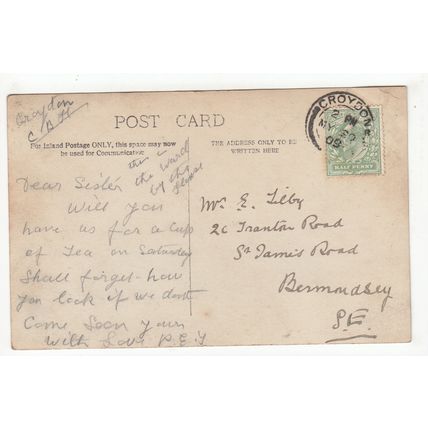 Croydon
POST CARD
For Inland Postage ONLY, this space may now
be used for Communication
THE ADDRESS ONLY TO BE
WRITTEN HERE
the word
by the
please
Dear Sister
Will you
have us for a Cup
of Tea on Saturday
Shall forget how
you look if we dont
Come Soon yours
With Love
CROYDON
HALF PENNY
Mr. E. Tilby
26 Tranton Road
St James Road
Bermondsey
S.E.